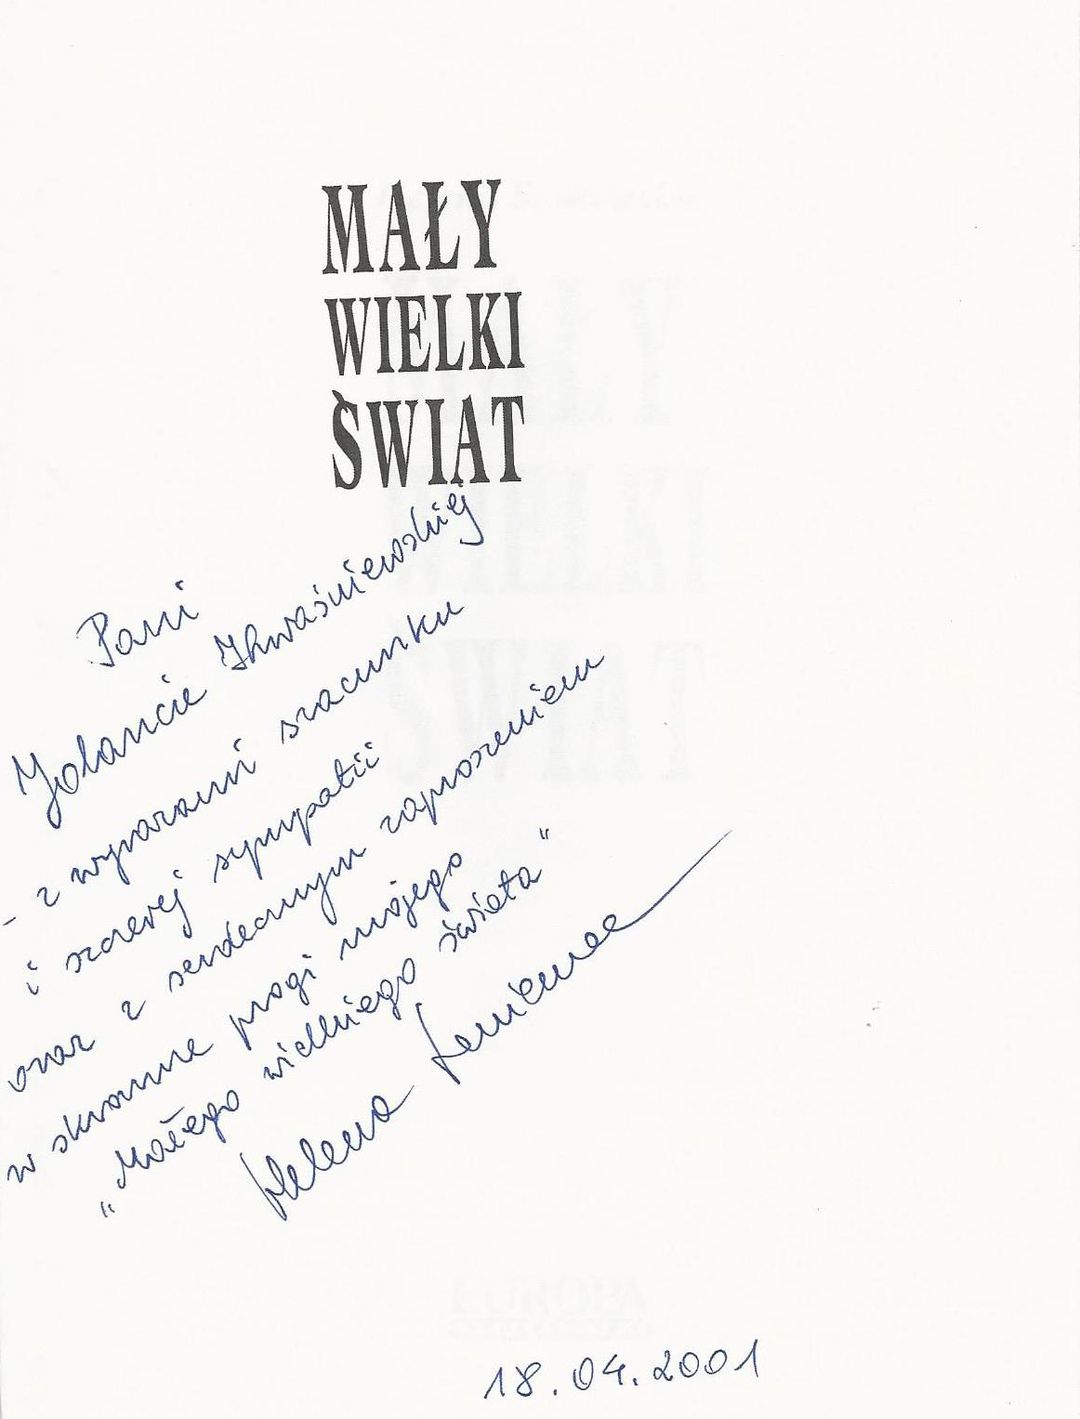 MAŁY
WIELKI
ŚWIAT
Pani
Jolancie Kwaśniewskiej
- z wyrazami szacunku
i szczerej sympatii
oraz z serdecznym zaproszeniem
w skromne progi mojego
"Małego wielkiego świata"
Helena
18.04.2001